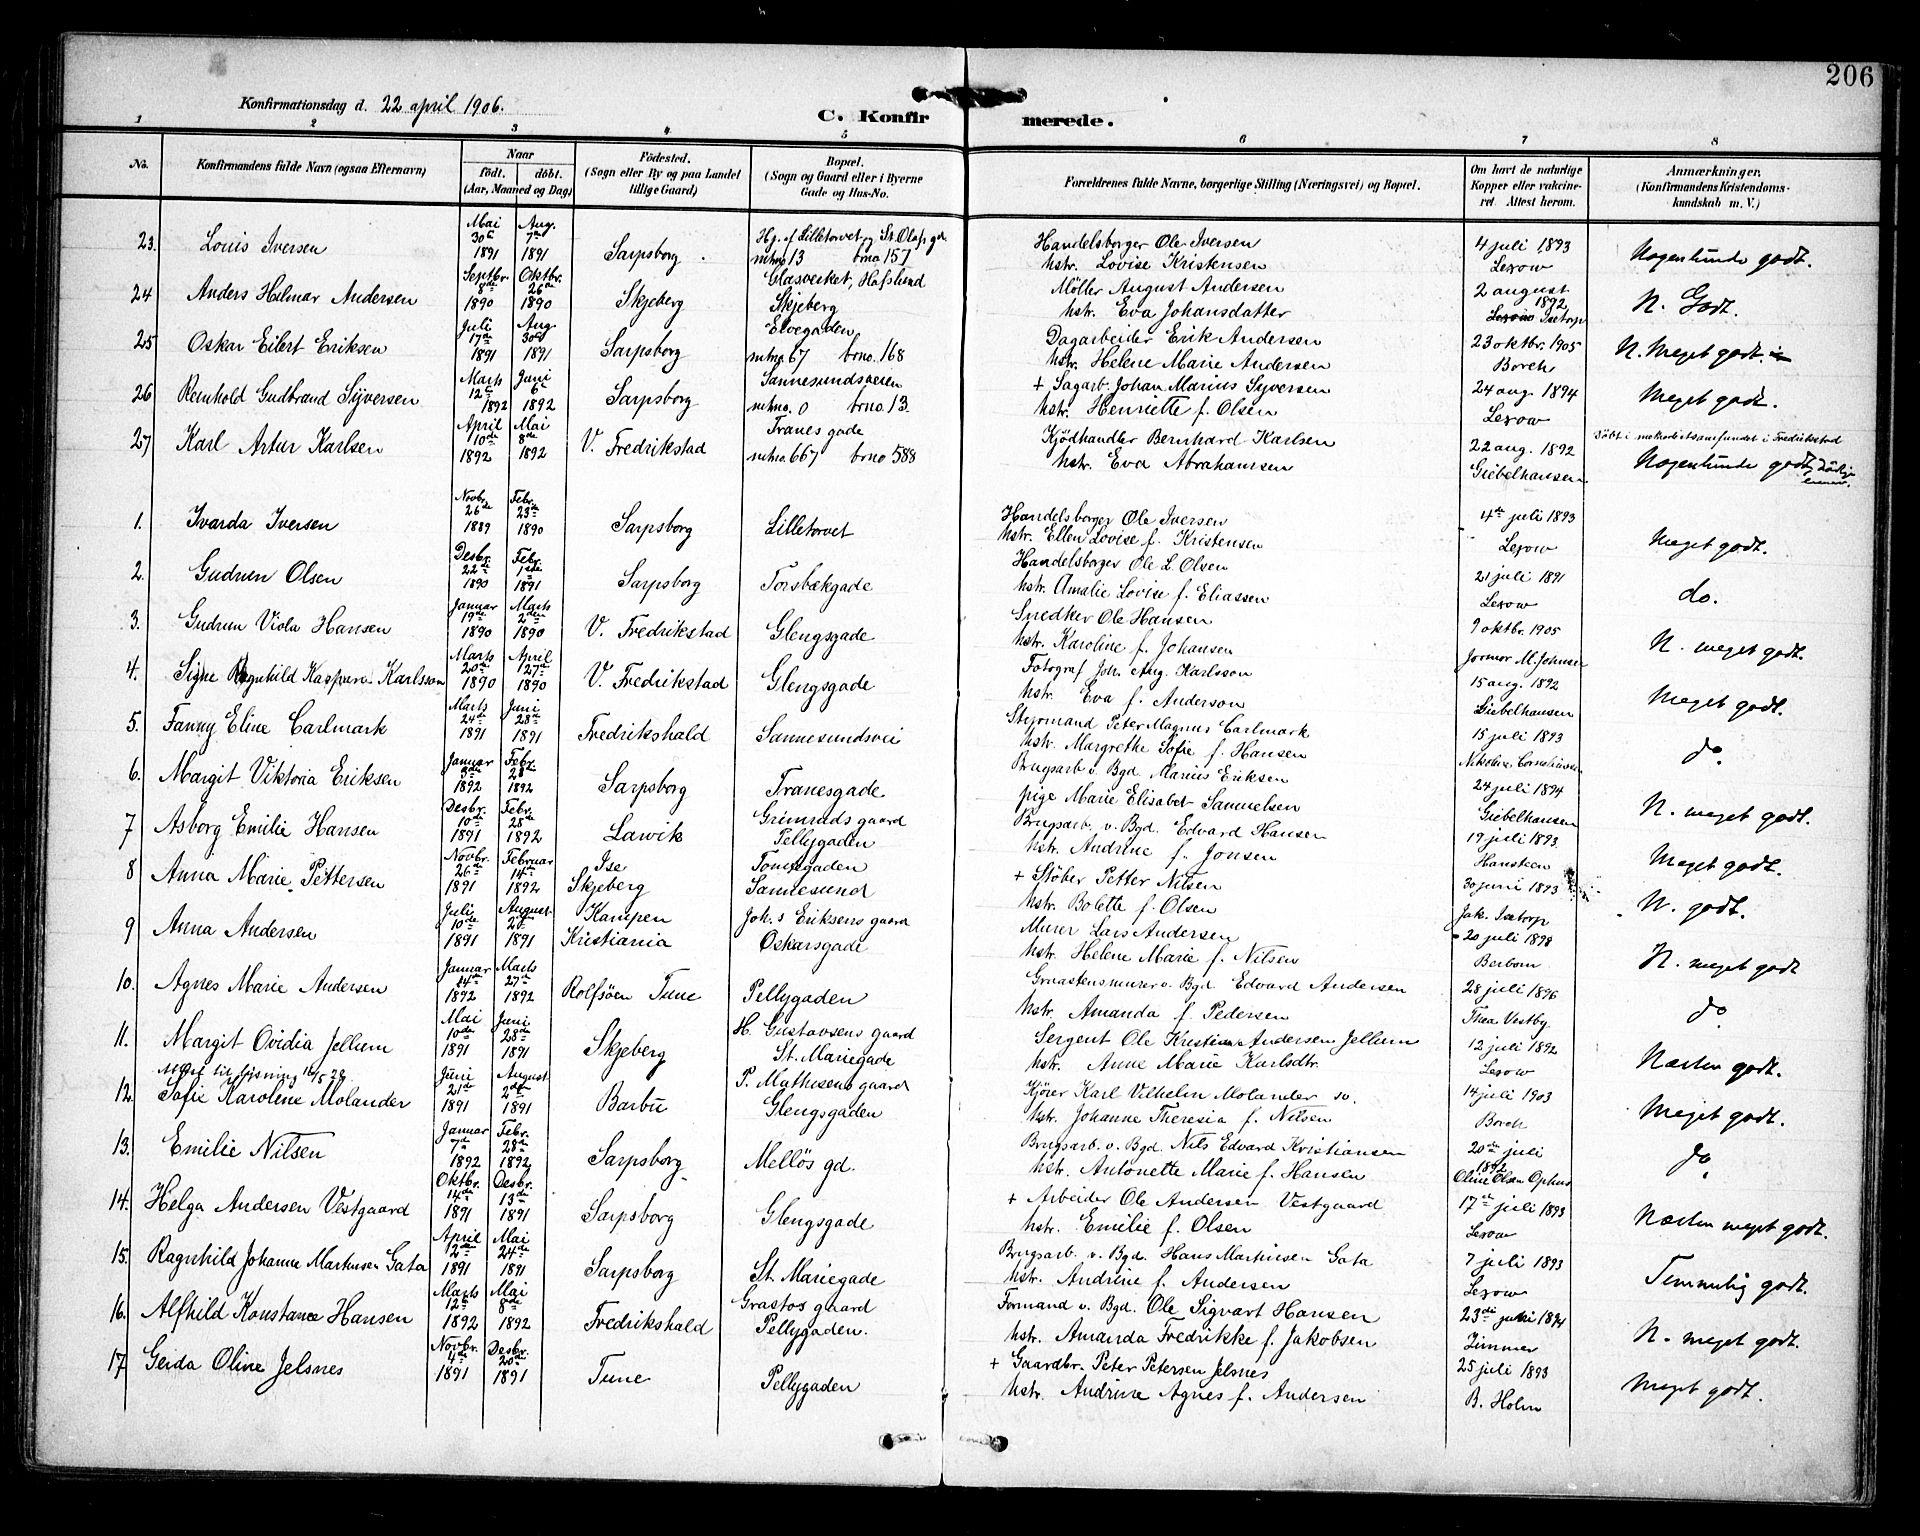 206
Konfirmationsdag d. 22 april 1906.
C. Konfirmerede.
1 2 3 4 5 6 7 8
No. Konfirmandens fulde Navn (ogsaa Efternavn) Naar født. døbt. (Aar, Maaned og Dag) Fødested. (Sogn eller By og paa Landet tillige Gaard) Bopæl. (Sogn og Gaard eller i Byerne Gade og Hus-No. Forældrenes fulde Navne, borgerlige Stilling (Næringsvei) og Bopæl. Om havt de naturlige Kopper eller vakcineret. Attest herom. Anmærkninger. (Konfirmandens Kristendomskundskab m. V.)
23. Louis Iversen Mai 30te 1891 Aug. 7de 1891 Sarpsborg. Hj. af Lilletorvet og St. Olafs gd. mtno 13 brno 157 Handelsborger Ole Iversen hstr. Lovise Kristensen 4 juli 1893 Lexow Nogenlunde godt.
24 Anders Helmar Andersen Septbr. 8de 1890 Oktbr. 26de 1890 Skjeberg Glasverket, Hafslund Skjeberg Møller August Andersen hstr. Eva Johansdatter 2 august 1892 N. Godt.
25 Oskar Eilert Eriksen Juli 17de 1891 Aug. 30te 1891 Sarpsborg Elvegaden mtno. 67 brno. 168 Dagarbeider Erik Andersen hstr. Helene Marie Andersen 23 oktbr. 1905 Borch N. Meget godt.
26 Reinhold Gudbrand Syversen Marts 12te 1892 Juni 6te 1892 Sarpsborg Sannesundsveien mtno. 0 brno. 13. + Sagarb. Johan Marius Syversen hstr. Henriette f. Olsen 24 aug. 1894 Lexow Meget godt.
27 Karl Artur Karlsen April 10de 1892 Mai 8de 1892 V. Fredrikstad Tranes gade mtno. 667 brno 588 Kjødhandler Bernhard Karlsen hstr. Eva Abrahamsen 22 aug. 1892 Giebelhausen Døbt i methodistsamfundet i Fredrikstad Nogenlunde godt
1. Ivarda Iversen Novbr. 26de 1889 Febr. 23de 1890 Sarpsborg Lilletorvet Handelsborger Ole Iversen hstr. Ellen Lovise f. Kristensen 4de juli 1893 Lexow Meget godt.
2. Gudrun Olsen Desbr. 22de 1890 Febr. 1ste 1891 Sarpsborg Torsbækgade Handelsborger Ole L. Olsen hstr. Amalie Lovise f. Eliassen 21 juli 1891 Lexow do.
3. Gudrun Viola Hansen Januar 19de 1890 Marts 2den 1890 V. Fredrikstad Glengsgade Snedker Ole Hansen hstr. Karoline f. Johansen 9 oktbr. 1905 Jormor M. Johnsen N. meget godt.
4. Signe Ragnhild Kaspara Karlsson Marts 20de 1890 April 27de 1890 V. Fredrikstad Glengsgade Fotograf Joh. Aug. Karlsson hstr. Eva f. Anderson 15 aug. 1892 Giebelhausen Meget godt.
5. Fanny Eline Carlmark Marts 24de 1891 Juni 28de 1891 Fredrikshald Sannesundsvei Styrmand Peter Magnus Carlmark hstr. Margrethe Sofie f. Hansen 15 juli 1893 Nikoline Corneliussen do.
6. Margit Viktoria Eriksen Januar 1892 Febr. 28de 1892 Sarpsborg Tranesgade Brugsarb. v. Bgd. Marius Eriksen pige Marie Elisabet Samuelsen 24 juli 1894 Giebelhausen N. meget godt.
7 Asborg Emilie Hansen Desbr. 10de 1891 Febr. 28de 1892 Larvik Grimruds gaard Pellygaden Brugsarb. v. Bgd. Edvard Hansen hstr. Andrine f. Jonsen 19 juli 1893 Hansteen Meget godt.
8 Anna Marie Pettersen Novbr. 26de 1891 Februar 14de 1892 Ise Skjeberg Tomtegaden Sannesund + Støber Petter Nilsen hstr. Bolette f. Olsen 30 juni 1893 Jak. Isetorp N. godt.
9 Anna Andersen Juli 10de 1891 August 1891 Kampen Kristiania Joh.s Eriksens gaard Oskarsgade Murer Lars Andersen hstr. Helene Marie f. Nilsen 20 juli 1898 Berbom N. meget godt
10. Agnes Marie Andersen Januar 14de 1892 Marts 27de 1892 Rolfsøen Tune Pellygaden Graastensmurer v. Bgd Edvard Andersen hstr. Amanda f. Pedersen 28 juli 1896 Thea Vestby do
11. Margit Ovidia Jellum Mai 10de 1891 Juni 28de 1891 Skjeberg H. Gustavsens gaard St. Mariegade Sergent Ole Kristian Andersen Jellum hstr. Anne Marie Karlsdtr. 12 juli 1892 Lexow Næsten godt.
12. Sofie Karolene Molander Juni 21de 1891 August 2den 1891 Barbu P. Mathisens gaard Glengsgaden Kjører Karl Vilhelm Molander hstr. Johanne Theresia f. Nilsen 14 juli 1903 Borch Meget godt.
13. Emilie Nilsen Januar 7de 1892 Febr. 28de 1892 Sarpsborg Melløs gd. Brugsarb. v. Bgd. Nils Edvard Kristiansen hstr. Antonette Marie f. Hansen 20de juli 1892 Oline Olsen Ophus do
14. Helga Andersen Vestgaard Oktbr. 14de 1891 Desbr. 13de 1891 Sarpsborg Glengsgade + Arbeider Ole Andersen Vestgaard hstr. Emilie f. Olsen 17de juli 1893 Lexow Næsten meget godt.
15. Ragnhild Johanne Martinsen Gata April 2den 1891 Mai 24de 1891 Sarpsborg St. Mariegade Brugsarb. v. Bgd. Hans Martinsen Gata hstr. Andrine f. Andersen 7 juli 1893 Lexow Temmelig godt.
16. Alfhild Konstance Hansen Marts 12te 1892 Mai 8de 1892 Fredrikshald Grastos gaard Pellygaden. Formand v. Bgd. Ole Sigvart Hansen hstr. Amanda Fredrikke f. Jakobsen 23de 1894 Zimmer N. meget godt.
17 Gerda Oline Jelsnes Novbr. 4de 1891 Desbr. 20de 1891 Tune Pellygaden + Gaardbr. Peter Petersen Jelsnes hstr. Andrine Agnes f. Andersen 25 juli 1893 B. Holm Meget godt.